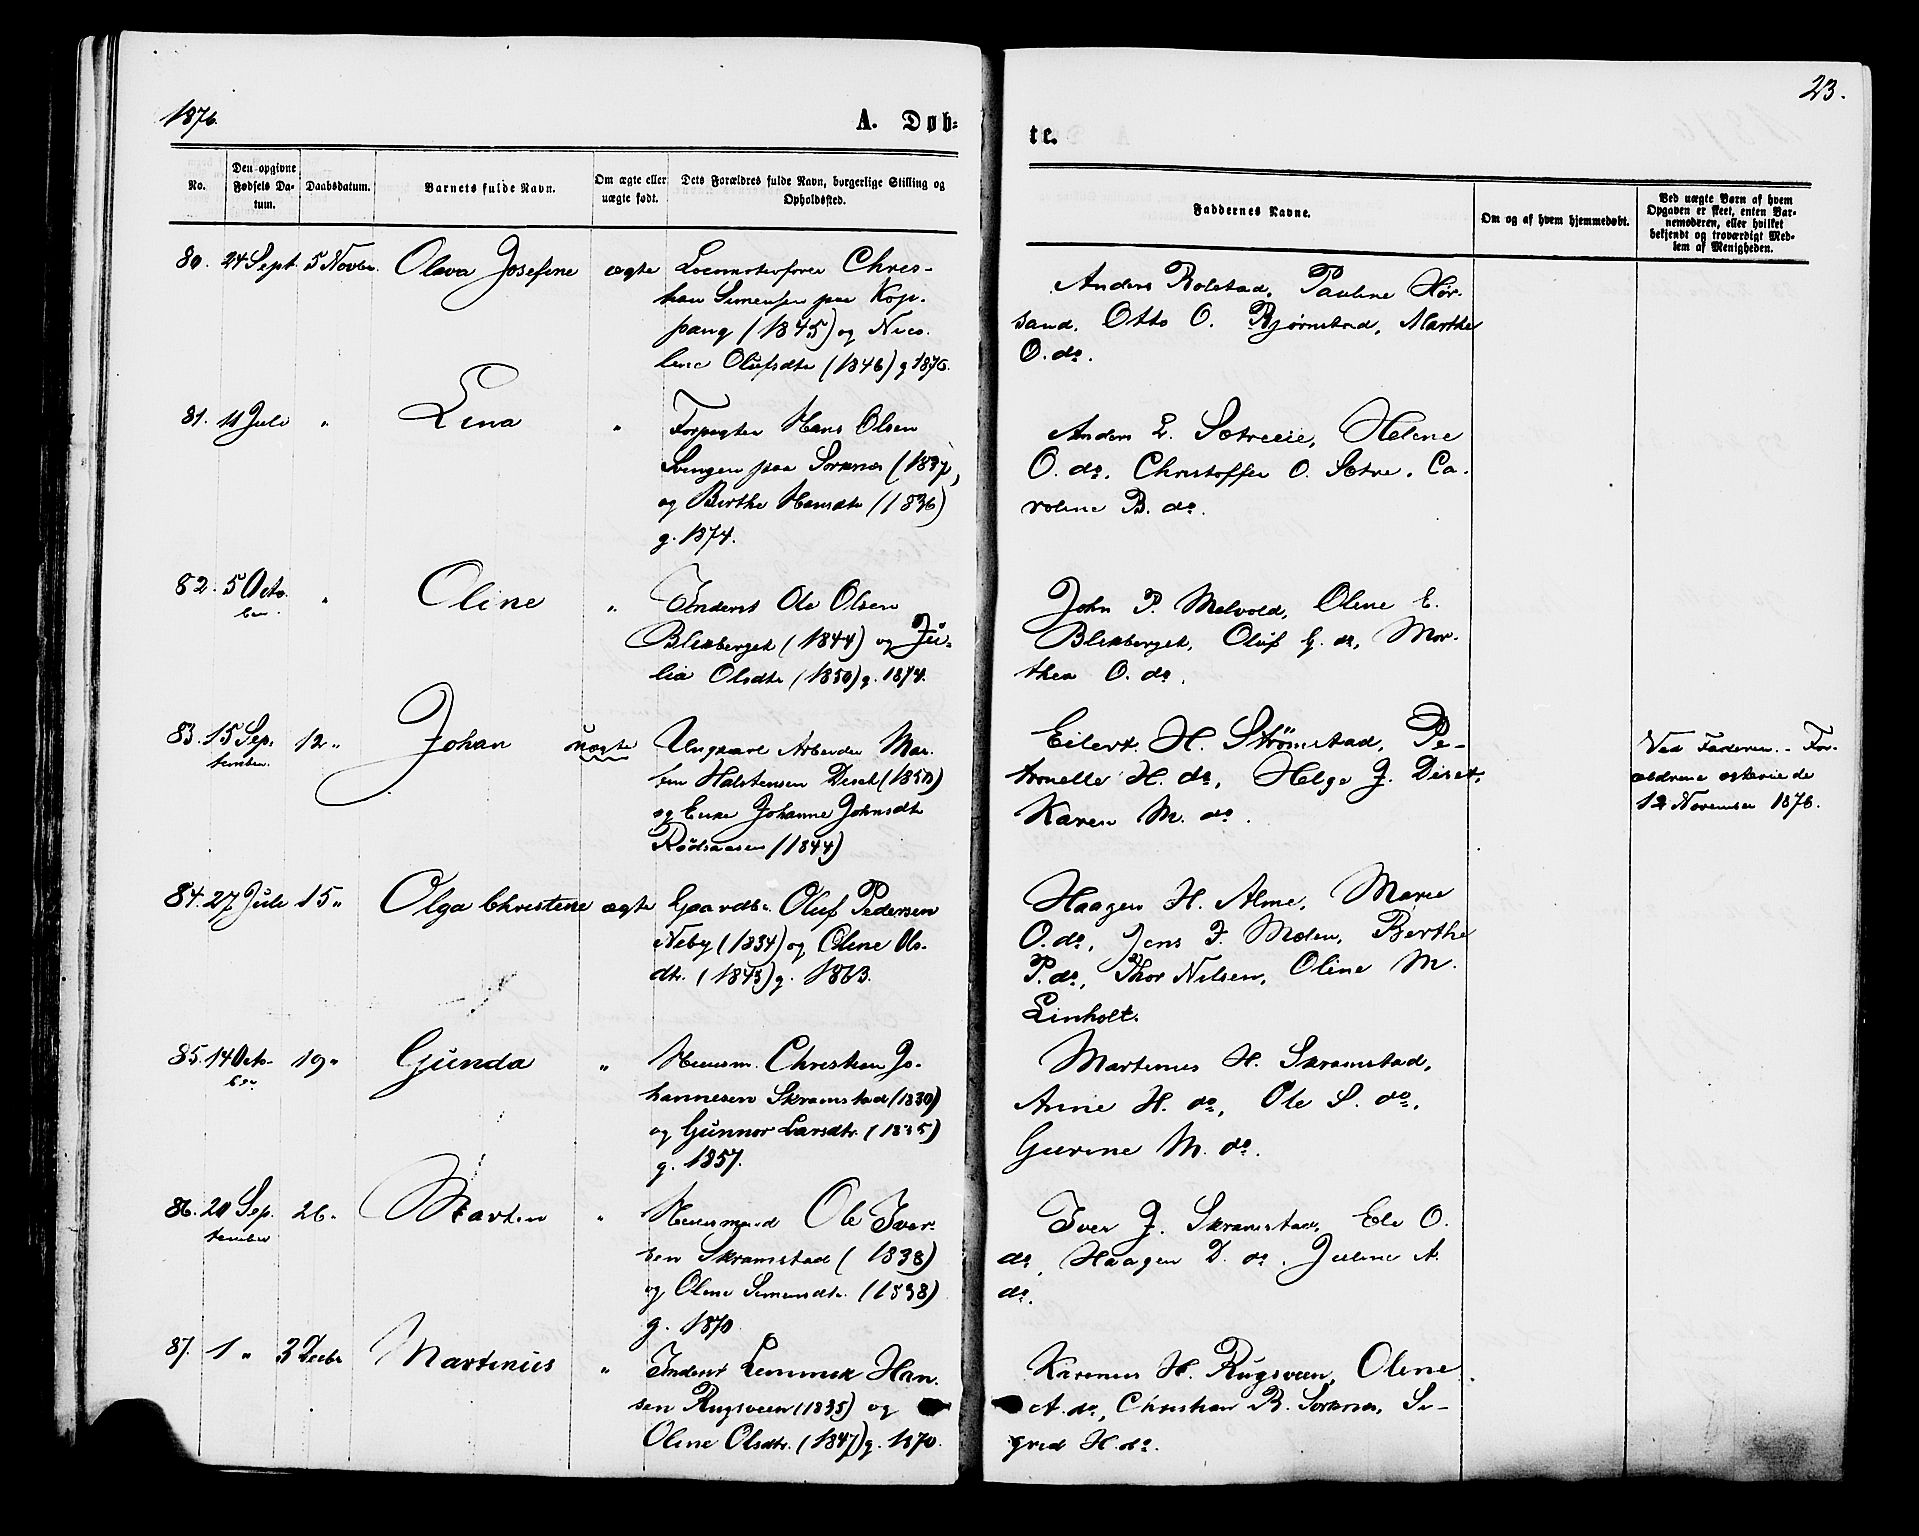 1876.
A. Døb-
te.
23.
No.
Den opgivne Fødsels Da-tum.
Daabsdatum.
Barnets fulde Navn.
Om ægte eller uægte født.
Dets Forældres fulde Navn, borgerlige Stilling og Opholdssted.
Faddernes Navne.
Om og af hvem hjemmedøbt.
Ved uægte Børn af hvem Opgaven er skeet, enten Bar-nemoderen, eller hvilket bekjendt og troværdigt Med-lem af Menigheden.
80. 24 Sept. 5 Novbr. Oleva Josefine ægte
Locomotivfører Chris-
tian Simensen paa Kop-
pang (1845) og Nico-
line Olufsdtr (1846) g 1875.
Anders Bolstad, Pauline Hør-
sand, Otto O. Bjørnstad, Marthe
O. do.
81. 11 Juli " Lina "
Forpagter Hans Olsen
Svingen paa Sorknes (1837)
og Berthe Hansdtr (1836)
g. 1874.
Anders L. Sætreeie, Helene
O. do, Christoffer O. Sætre, Ca-
roline B. do.
82. 5 Octo-
ber. " Oline "
Inderst Ole Olsen
Blekberget (1844) og Ju-
lia Olsdtr (1850) g. 1874.
John P. Melvold, Oline E.
Blekberget, Oluf G. do, Mar-
thea O. do.
83. 15 Sep-
tember. 12 " Johan uægte
Ungkarl Arbeider Mar-
tin Halstensen Diset (1850)
og Enke Johanne Johnsdtr
Rødsaasen (1844)
Eilert H. Strømstad, Pe-
tronelle H. do, Helge J. Diset,
Karen M. do.
Ved Faderen. - For-
ældrene ægteviede
12 November 1876.
84. 27 Juli 15 " Olga Christine ægte
Gaardbr. Oluf Pedersen
Neby (1834) og Oline Ols-
dtr. (1843) g. 1863.
Haagen H. Alme, Marie
O. do, Jens F. Moen, Berthe
P. do, Thor Nilsen, Oline M.
Linholt.
85. 14 Octo-
ber 19 " Gunda "
Huusm. Christian Jo-
hannesen Skramstad (1830)
og Gunnor Larsdtr. (1835)
g. 1857.
Martinus H. Skramstad,
Anne H. do, Ole S. do,
Gurine M. do.
86. 20 Sep-
tember 26 " Martin "
Huusmand Ole Iver-
sen Skramstad (1838)
og Oline Simensdtr. (1838)
g. 1870
Iver J. Skramstad, Eli O.
do, Haagen D. do, Juline A.
do.
87. 1 " 3 Decbr Martinius "
Inderst Lemmik Han-
sen Rugsveen (1835) og
Oline Olsdtr. (1847) g. 1870.
Karinus H. Rugsveen, Oline
A. do, Christian B. Sorknes, Si-
grid H. do.